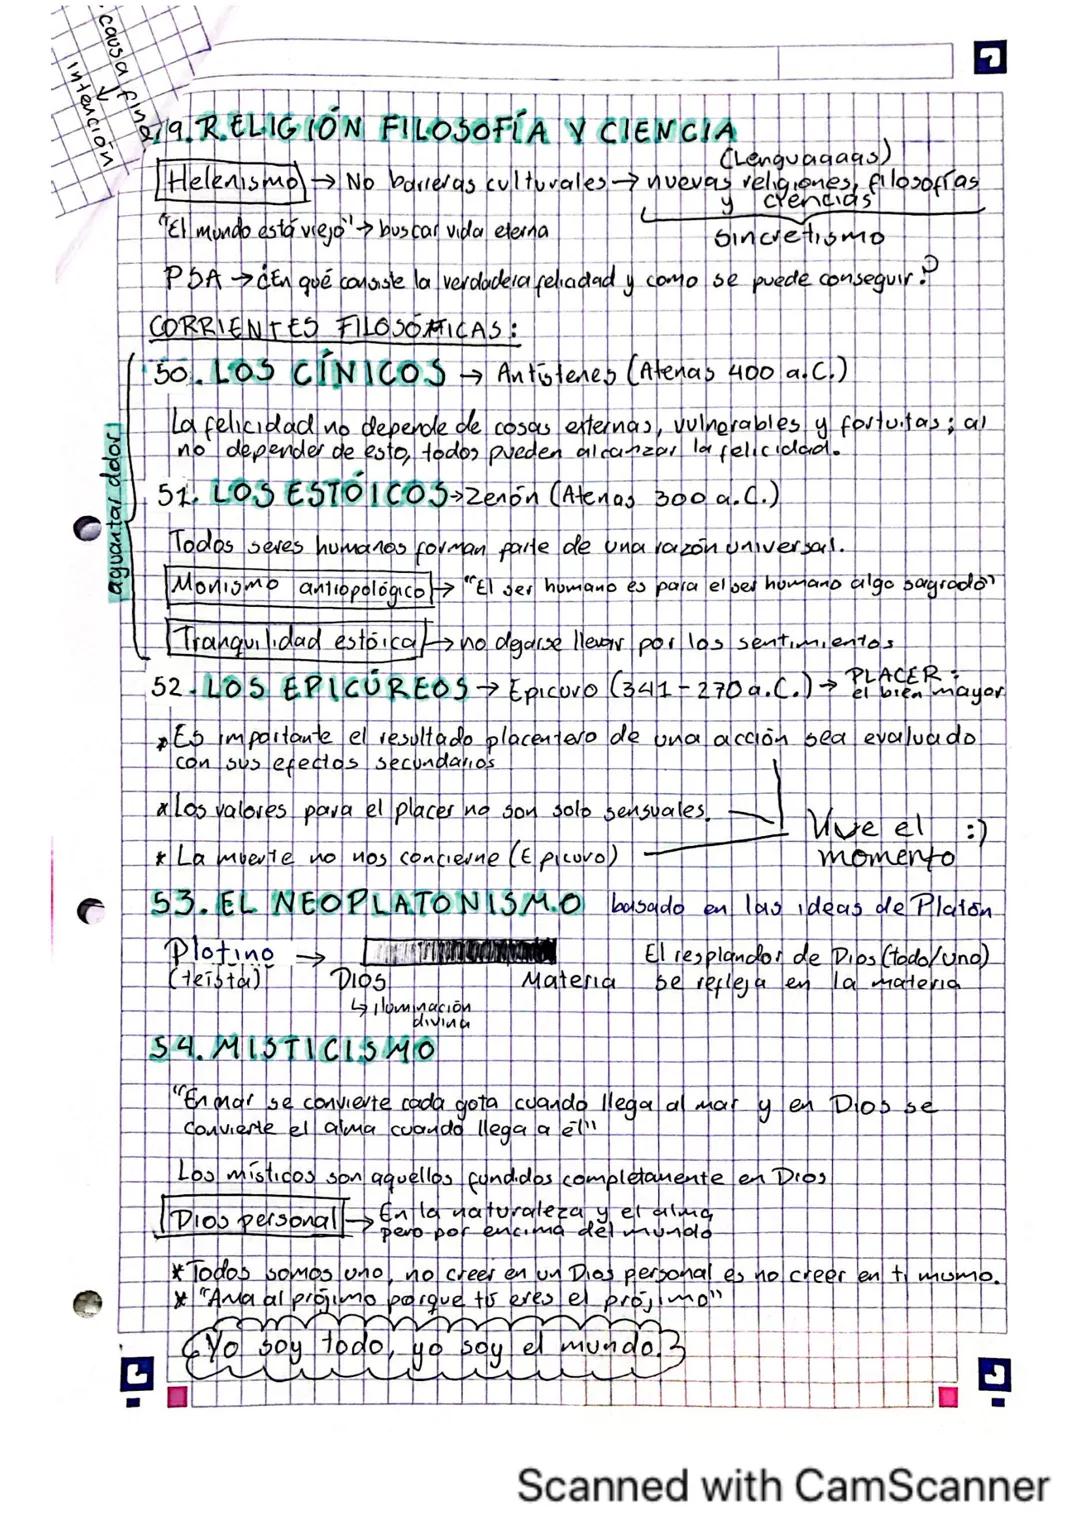 causa final
↓
intención
49. RELIGIÓN FILOSOFÍA Y CIENCIA
(Lenguagags)
Helenismo → No barreras culturales → nuevas religiones, filosofías
y ciencias
sincretismo
"El mundo está viejo" → buscar vida eterna
PSA → ¿En qué consiste la verdadera felicidad y como se puede conseguir?
CORRIENTES FILOSÓFICAS:
aguantar dolor
50. LOS CÍNICOS → Antístenes (Atenas 400 a.C.)
La felicidad no depende de cosas externas, vulnerables y fortuitas; al
no depender de esto, todos pueden alcanzar la felicidad.
51. LOS ESTÓICOS → Zenón (Atenas 300 a.C.)
Todos seres humanos forman parte de una razón universal.
Monismo antropológico → "El ser humano es para el ser humano algo sagrado"
Tranquilidad estóica → no dejarse llevar por los sentimientos
52. LOS EPICÚREOS → Epicuro (341-270 a.C.) → PLACER:
el bien mayor
* Es importante el resultado placentero de una acción sea evaluado
con sus efectos secundarios
* Los valores para el placer no son solo sensuales.
Vive el :)
momento
* La muerte no nos concierne (Epicuro)
53. EL NEOPLATONISMO basado en las ideas de Platón
Plotino →
(teísta)
DIOS
Materia
El resplandor de Dios (todo/uno)
se refleja en la materia
↳ iluminación
divina
54. MISTICISMO
"En mar se convierte cada gota cuando llega al mar y en Dios se
convierte el alma cuando llega a él"
Los místicos son aquellos fundidos completamente en Dios
Dios personal → En la naturaleza y el alma
pero por encima del mundo
* Todos somos uno, no creer en un Dios personal es no creer en ti mismo.
* "Ama al prójimo porque tú eres el prójimo"
Yo soy todo, yo soy el mundo.
Scanned with CamScanner